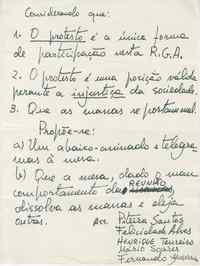 Considerando que:
1. O protesto é a única forma
de participação nesta R.G.A.
2. O protesto é uma posição válida
perante a injustiça da sociedade.
3. Que as manas se portam mal.
Propõe-se:
a) Um abaixo-assinado e telegra
mas à mesa.
b) Que a mesa, dado o mau
comportamento da REUNIÃO
dissolva as manas e eleja
outras.
Piteira Santos
Felicidade Alves
HENRIQUE Tenreiro
Mário Soares
Fernando